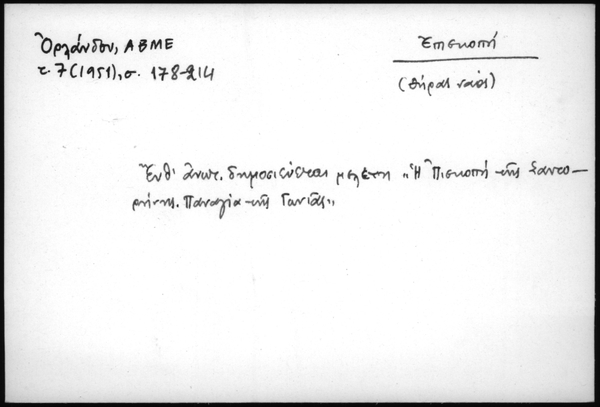 Ὀρλάνδου, ΑΒΜΕ
τ. 7 (1951), σ. 178-214
Ἐπισκοπή
(Θήρας ναός)
Ἔνθ' ἀνωτ. δημοσιεύεται μελέτη „Ἡ Πισκοπή τῆς Σαντο-
ρήνης. Παναγία τῆς Γωνιᾶς"